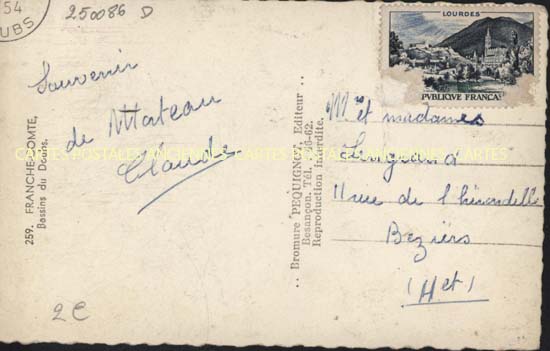 54
UBS
250086 D
LOURDES
PUBLIQUE FRANCAI
Souvenir
de Morteau
Claude
259. FRANCHE-COMTE,
Bassins du Doubs.
·· Bromure PEQUIGNOT, Editeur ··
Besançon. Tél. 46-62.
Reproduction interdite.
CARTES POSTALES ANCIENNES CARTES POSTALES ANCIENNES CARTES
et madames
11 rue de l'hirondelle
Beziers
(Het)
2€